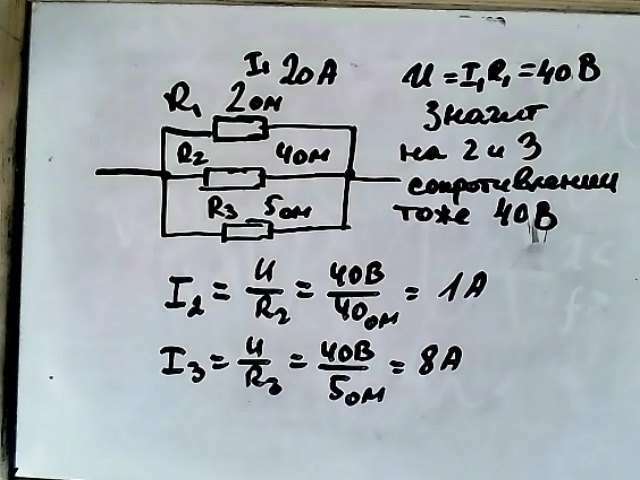 I₁ 20А
R₁ 2ом
R₂ 4ом
R₃ 5ом
U = I₁R₁ = 40В
Значит
на 2 и 3
сопротивлении
тоже 40В
I₂ = U/R₂ = 40В/40ом = 1А
I₃ = U/R₃ = 40В/5ом = 8А